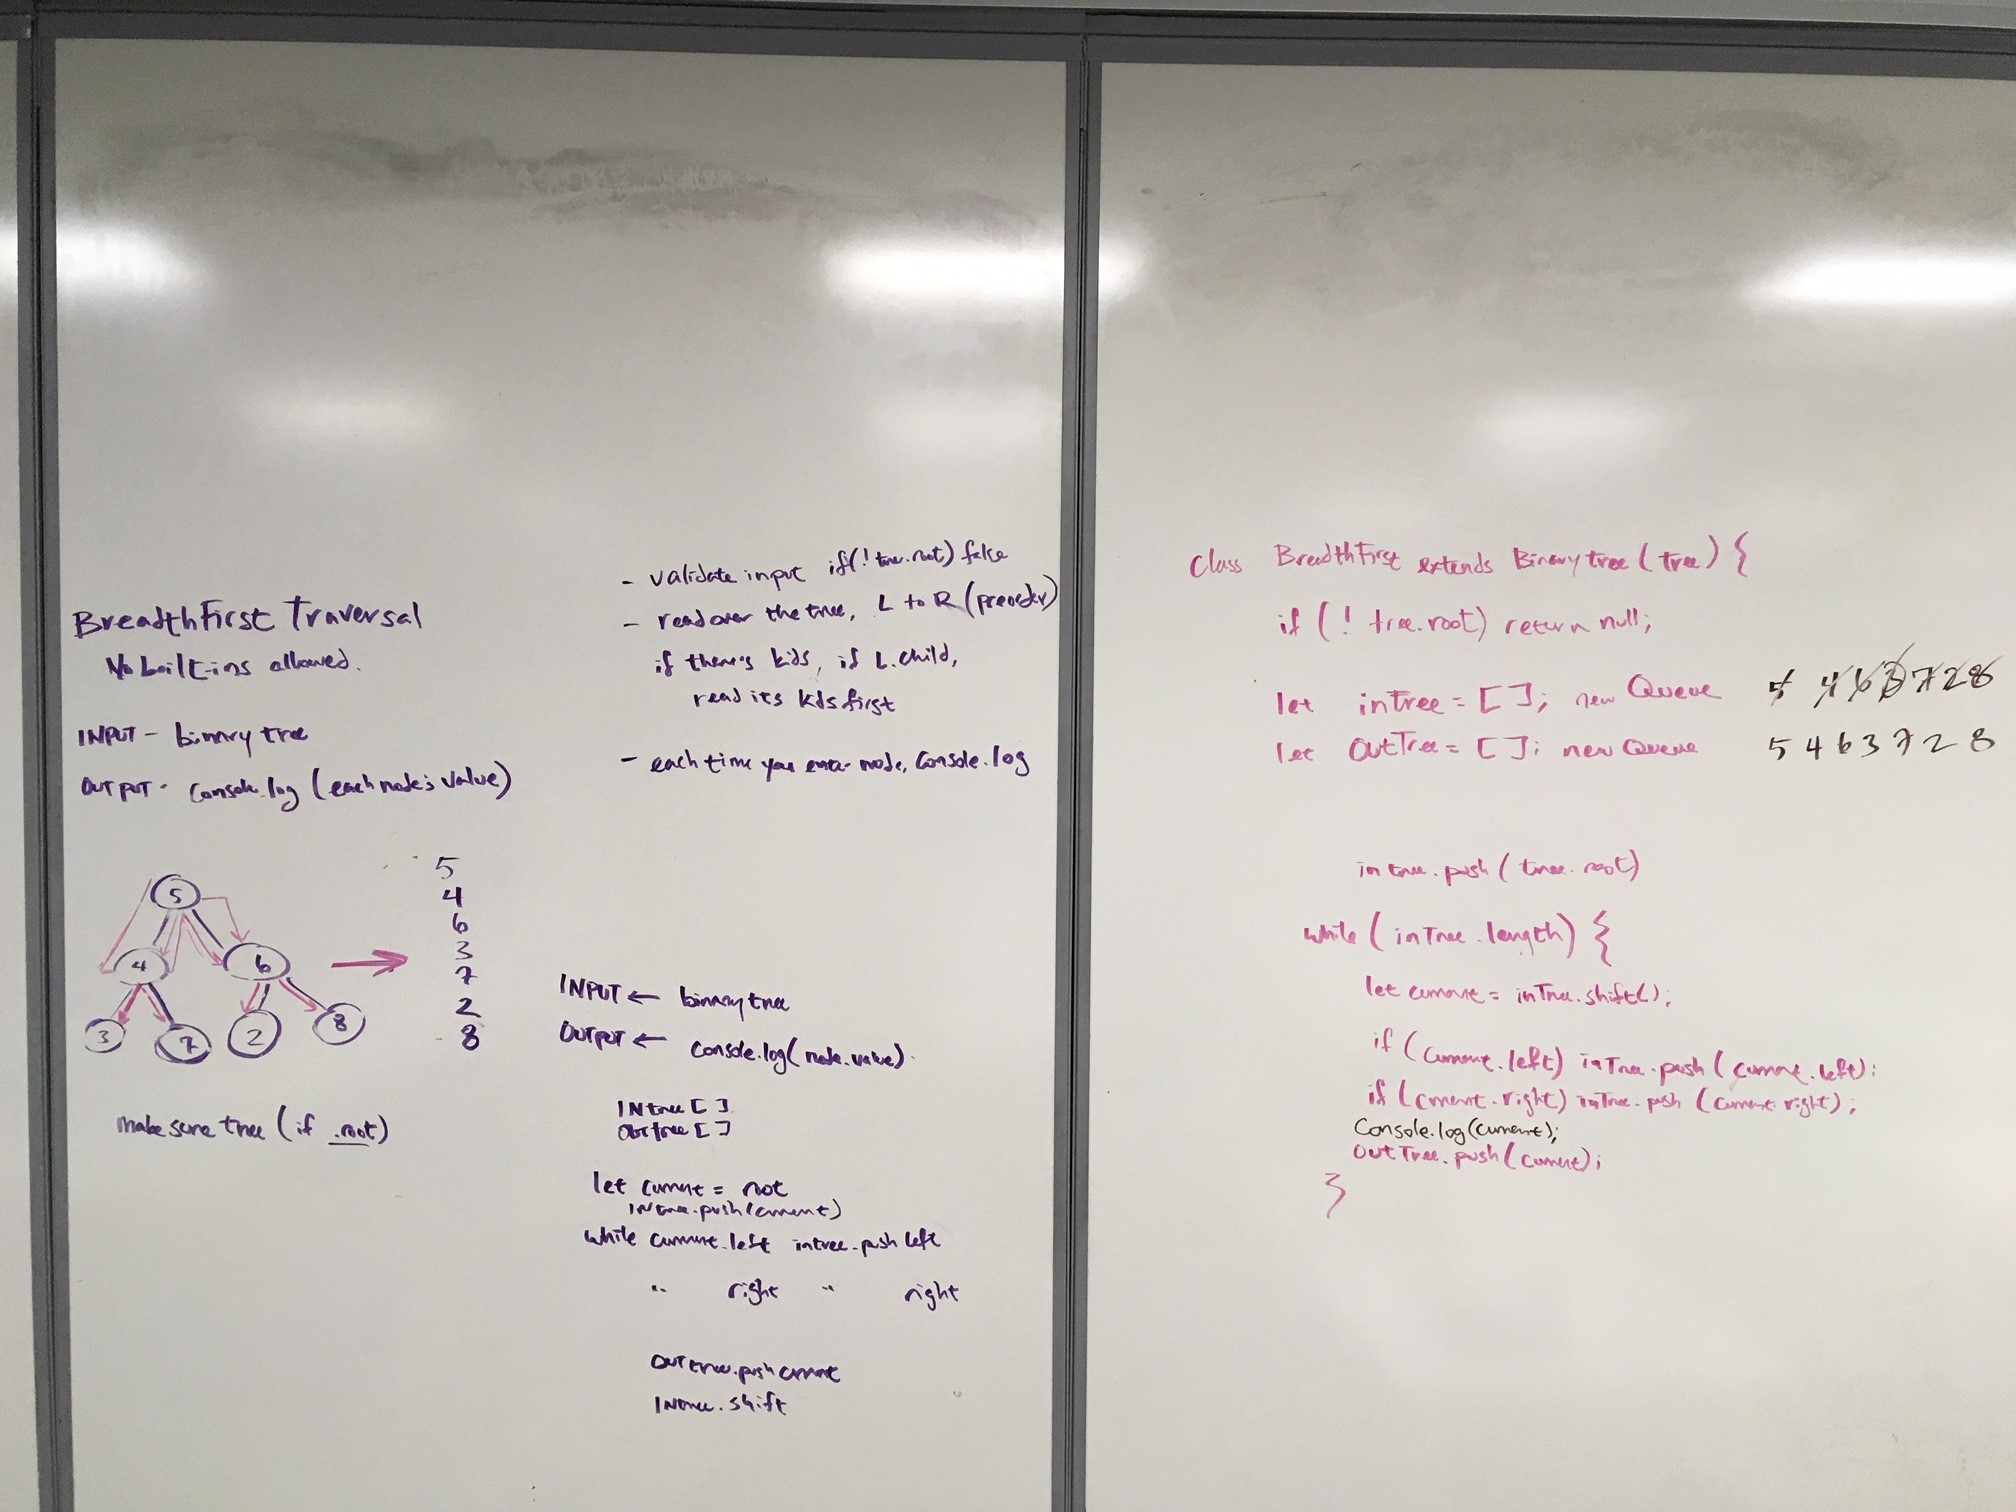 BreadthFirst Traversal
No built-ins allowed.
INPUT - binary tree
OUTPUT - Console.log (each node's value)
5
4 6
3 7 2 8
5
4
6
3
7
2
8
make sure tree (if .root)
- validate input if(! tree.root) false
- read over the tree, L to R (preorder)
if there's kids, if L.child,
read its kids first
- each time you enter node, Console.log
INPUT ← binary tree
OUTPUT ← Console.log(node.value).
INtree [ ]
OUTtree [ ]
let current = root
INtree.push(current)
while current.left intree.push left
" right " right
OUTtree.push current
INtree.shift
Class BreadthFirst extends Binary tree (tree) {
if (! tree.root) return null;
let inTree = [ ]; new Queue 5 4 6 3 7 2 8
let OutTree = [ ]; new Queue 5 4 6 3 7 2 8
in tree.push (tree.root)
while (inTree.length) {
let current = inTree.shift();
if (current.left) inTree.push (current.left);
if (current.right) inTree.push (current.right);
Console.log(current);
OutTree.push(current);
}